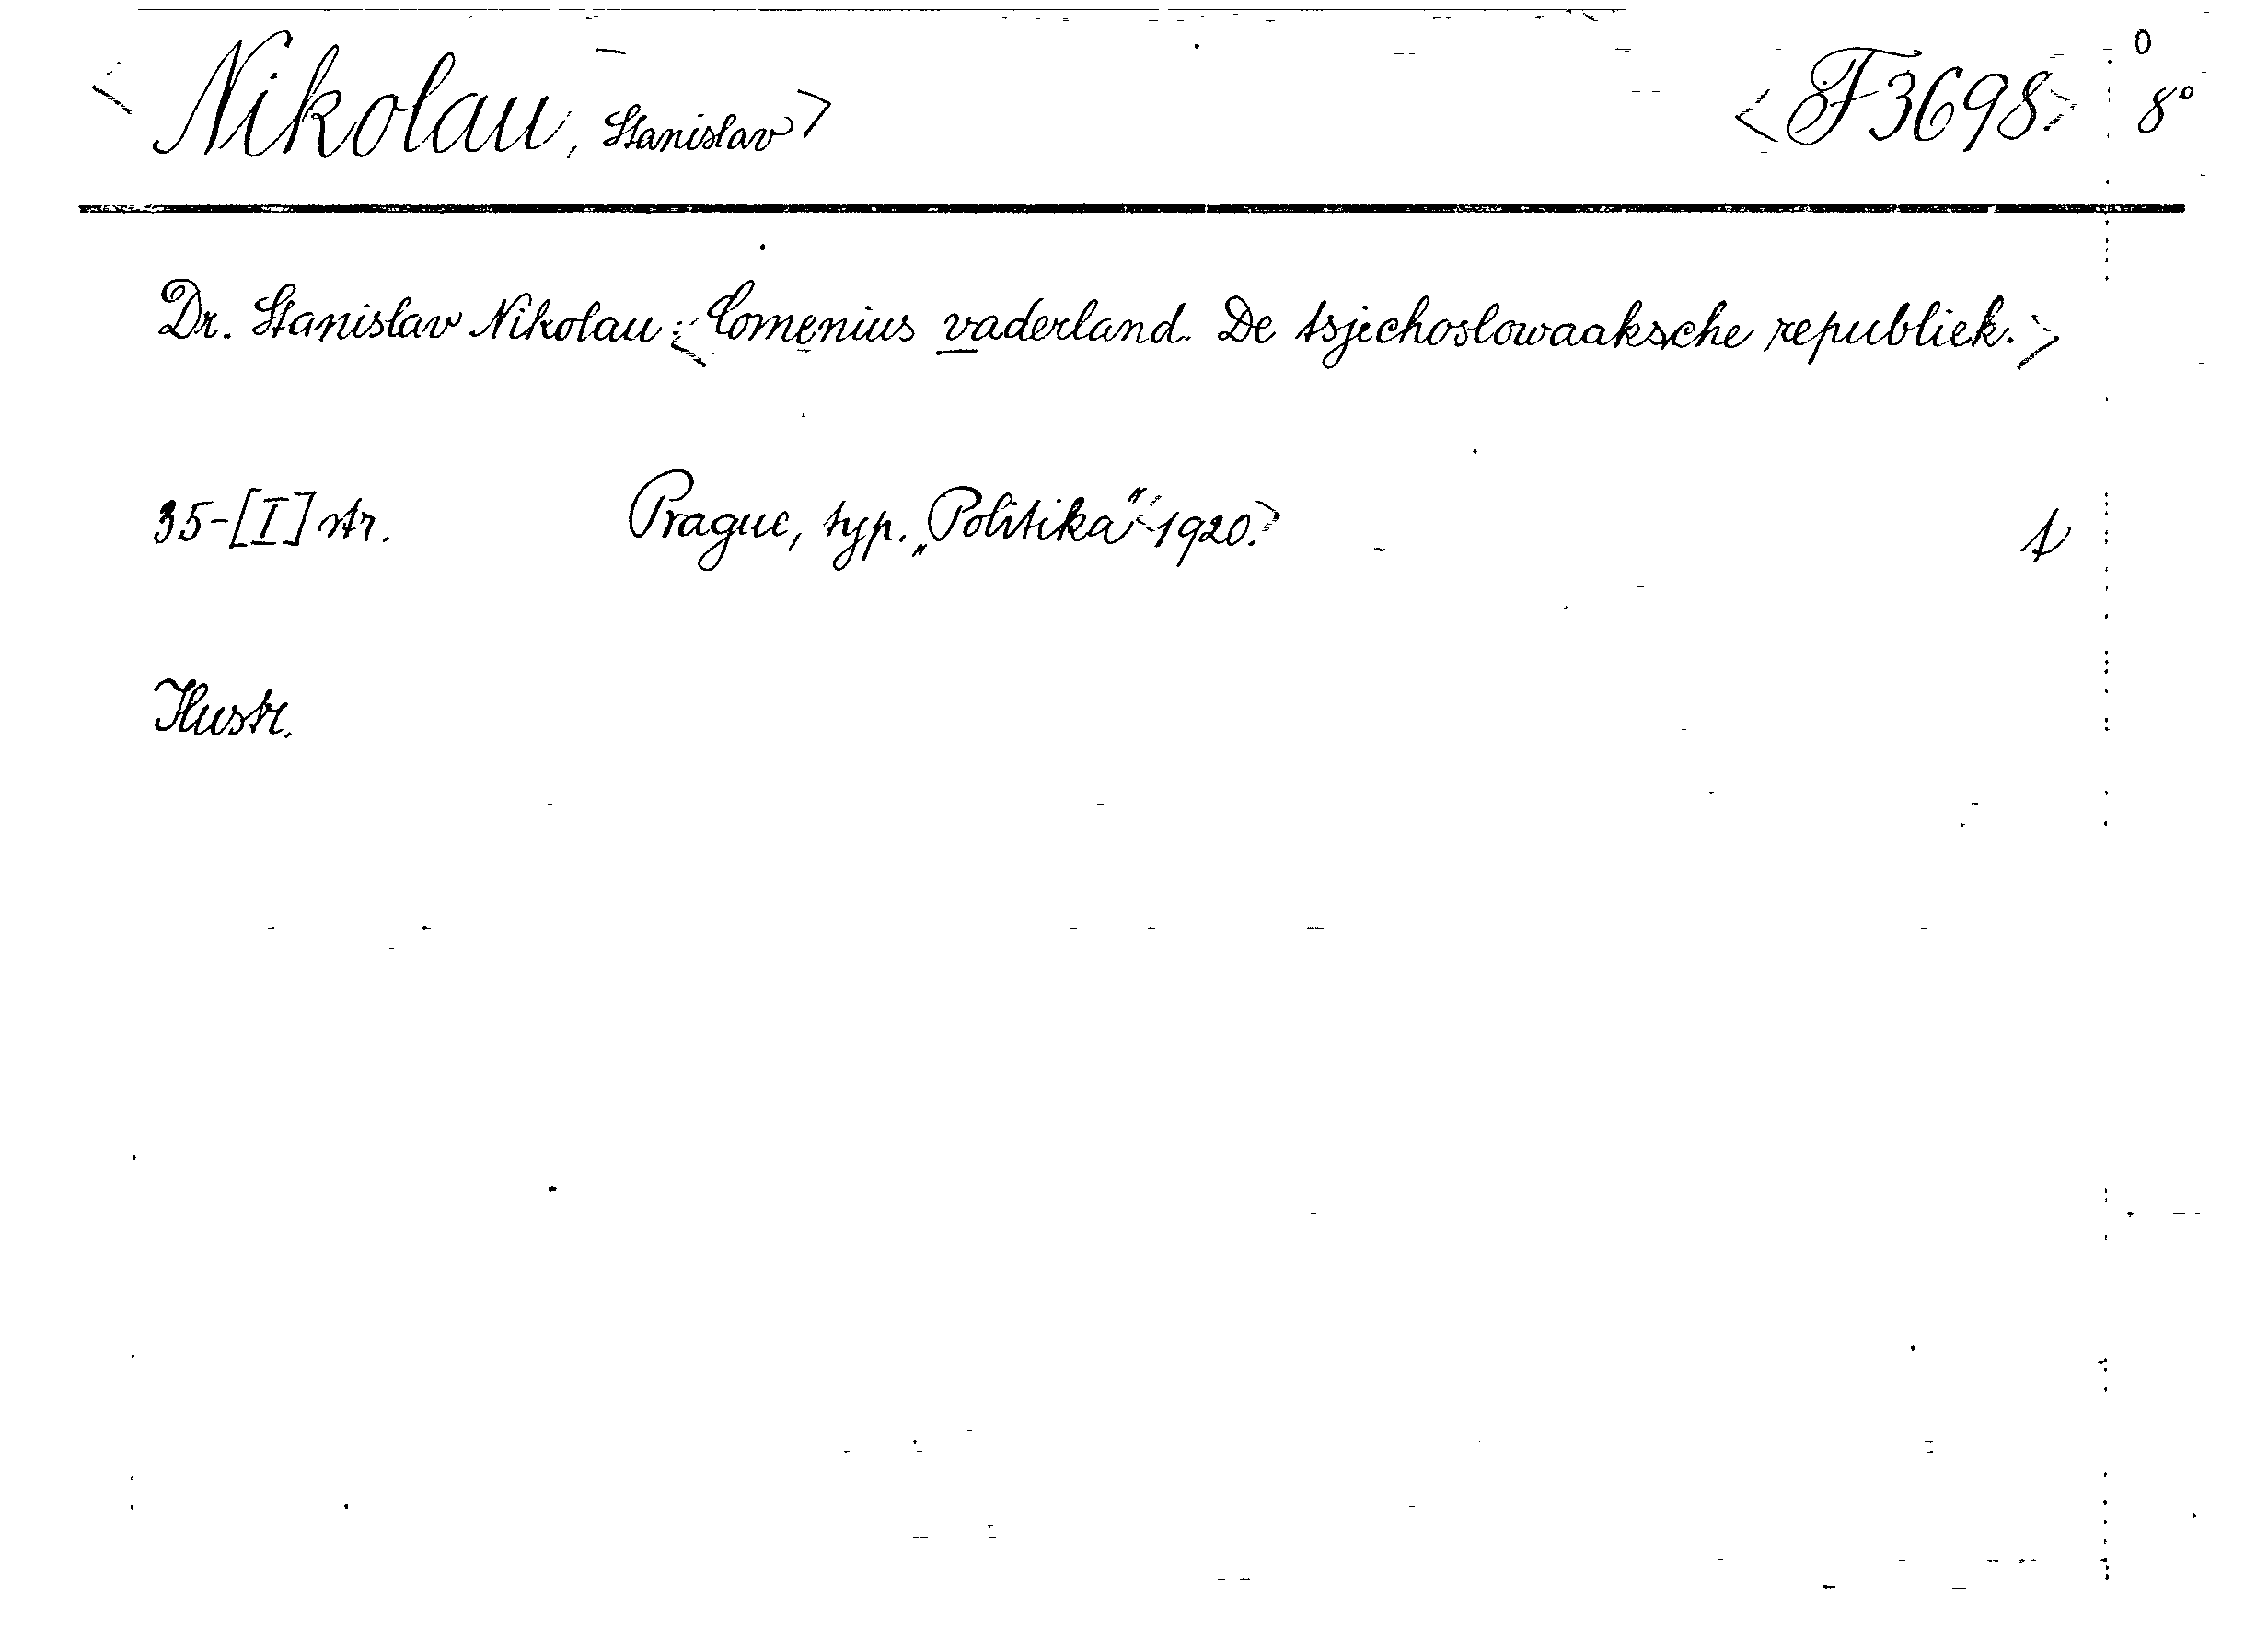 <Nikolau, Stanislav> <F 3698> 8°
Dr. Stanislav Nikolau: <Comenius vaderland. De tsjechoslowaaksche republiek.>
35-[I] str. Prague, typ. „Politika“ <1920.>
Ilustr.